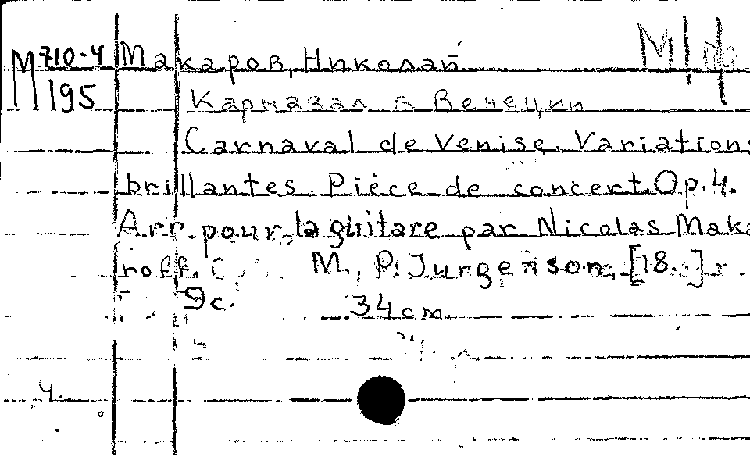 М 710-4 Макаров, Николай
195 Карнавал в Венеции
Carnaval de Venise. Variations
brillantes. Pièce de concert. Op. 4.
Arr. pour la guitare par Nicolas Maka
roff.
M., P. Jurgenson, [18. ] г.
9 с. 34 см.
4.